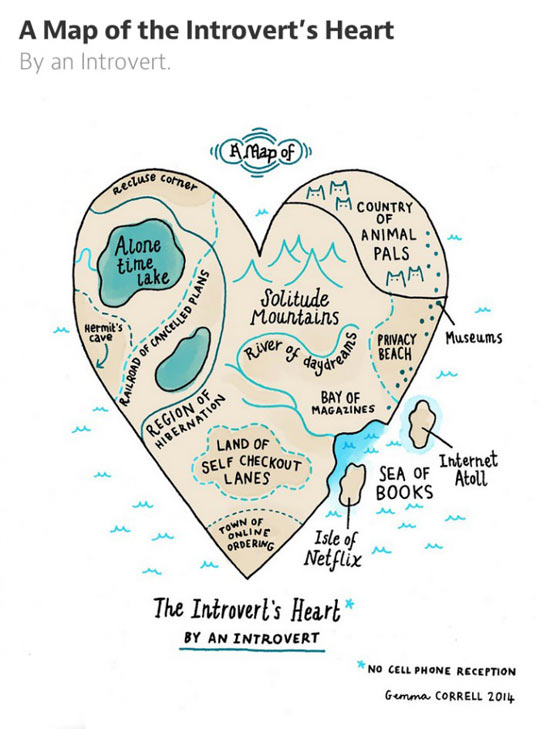 A Map of the Introvert's Heart
By an Introvert.
A Map of
Recluse corner
COUNTRY
OF
ANIMAL
PALS
Alone
time
lake
Solitude
Mountains
Hermit's
cave
RAILROAD OF CANCELLED PLANS
River of daydreams
PRIVACY
BEACH
Museums
REGION OF
HIBERNATION
BAY OF
MAGAZINES
LAND OF
SELF CHECKOUT
LANES
SEA OF
BOOKS
Internet
Atoll
TOWN OF
ONLINE
ORDERING
Isle of
Netflix
The Introvert's Heart*
BY AN INTROVERT
*NO CELL PHONE RECEPTION
Gemma CORRELL 2014